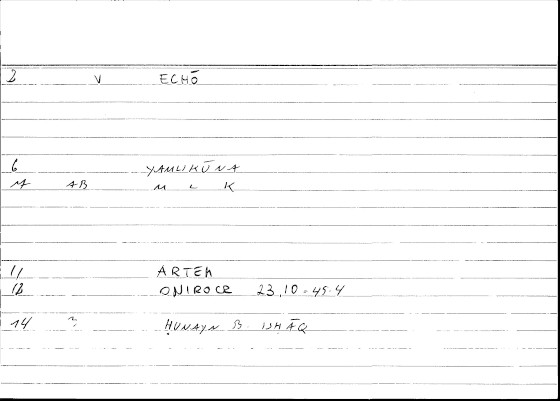 2 V ECHŌ
6 YAMLIKŪNA
M AB M L K
11 ARTEM
12 ONIROCR 23,10 = 45.4
14 3 ḤUNAYN B ISHĀQ